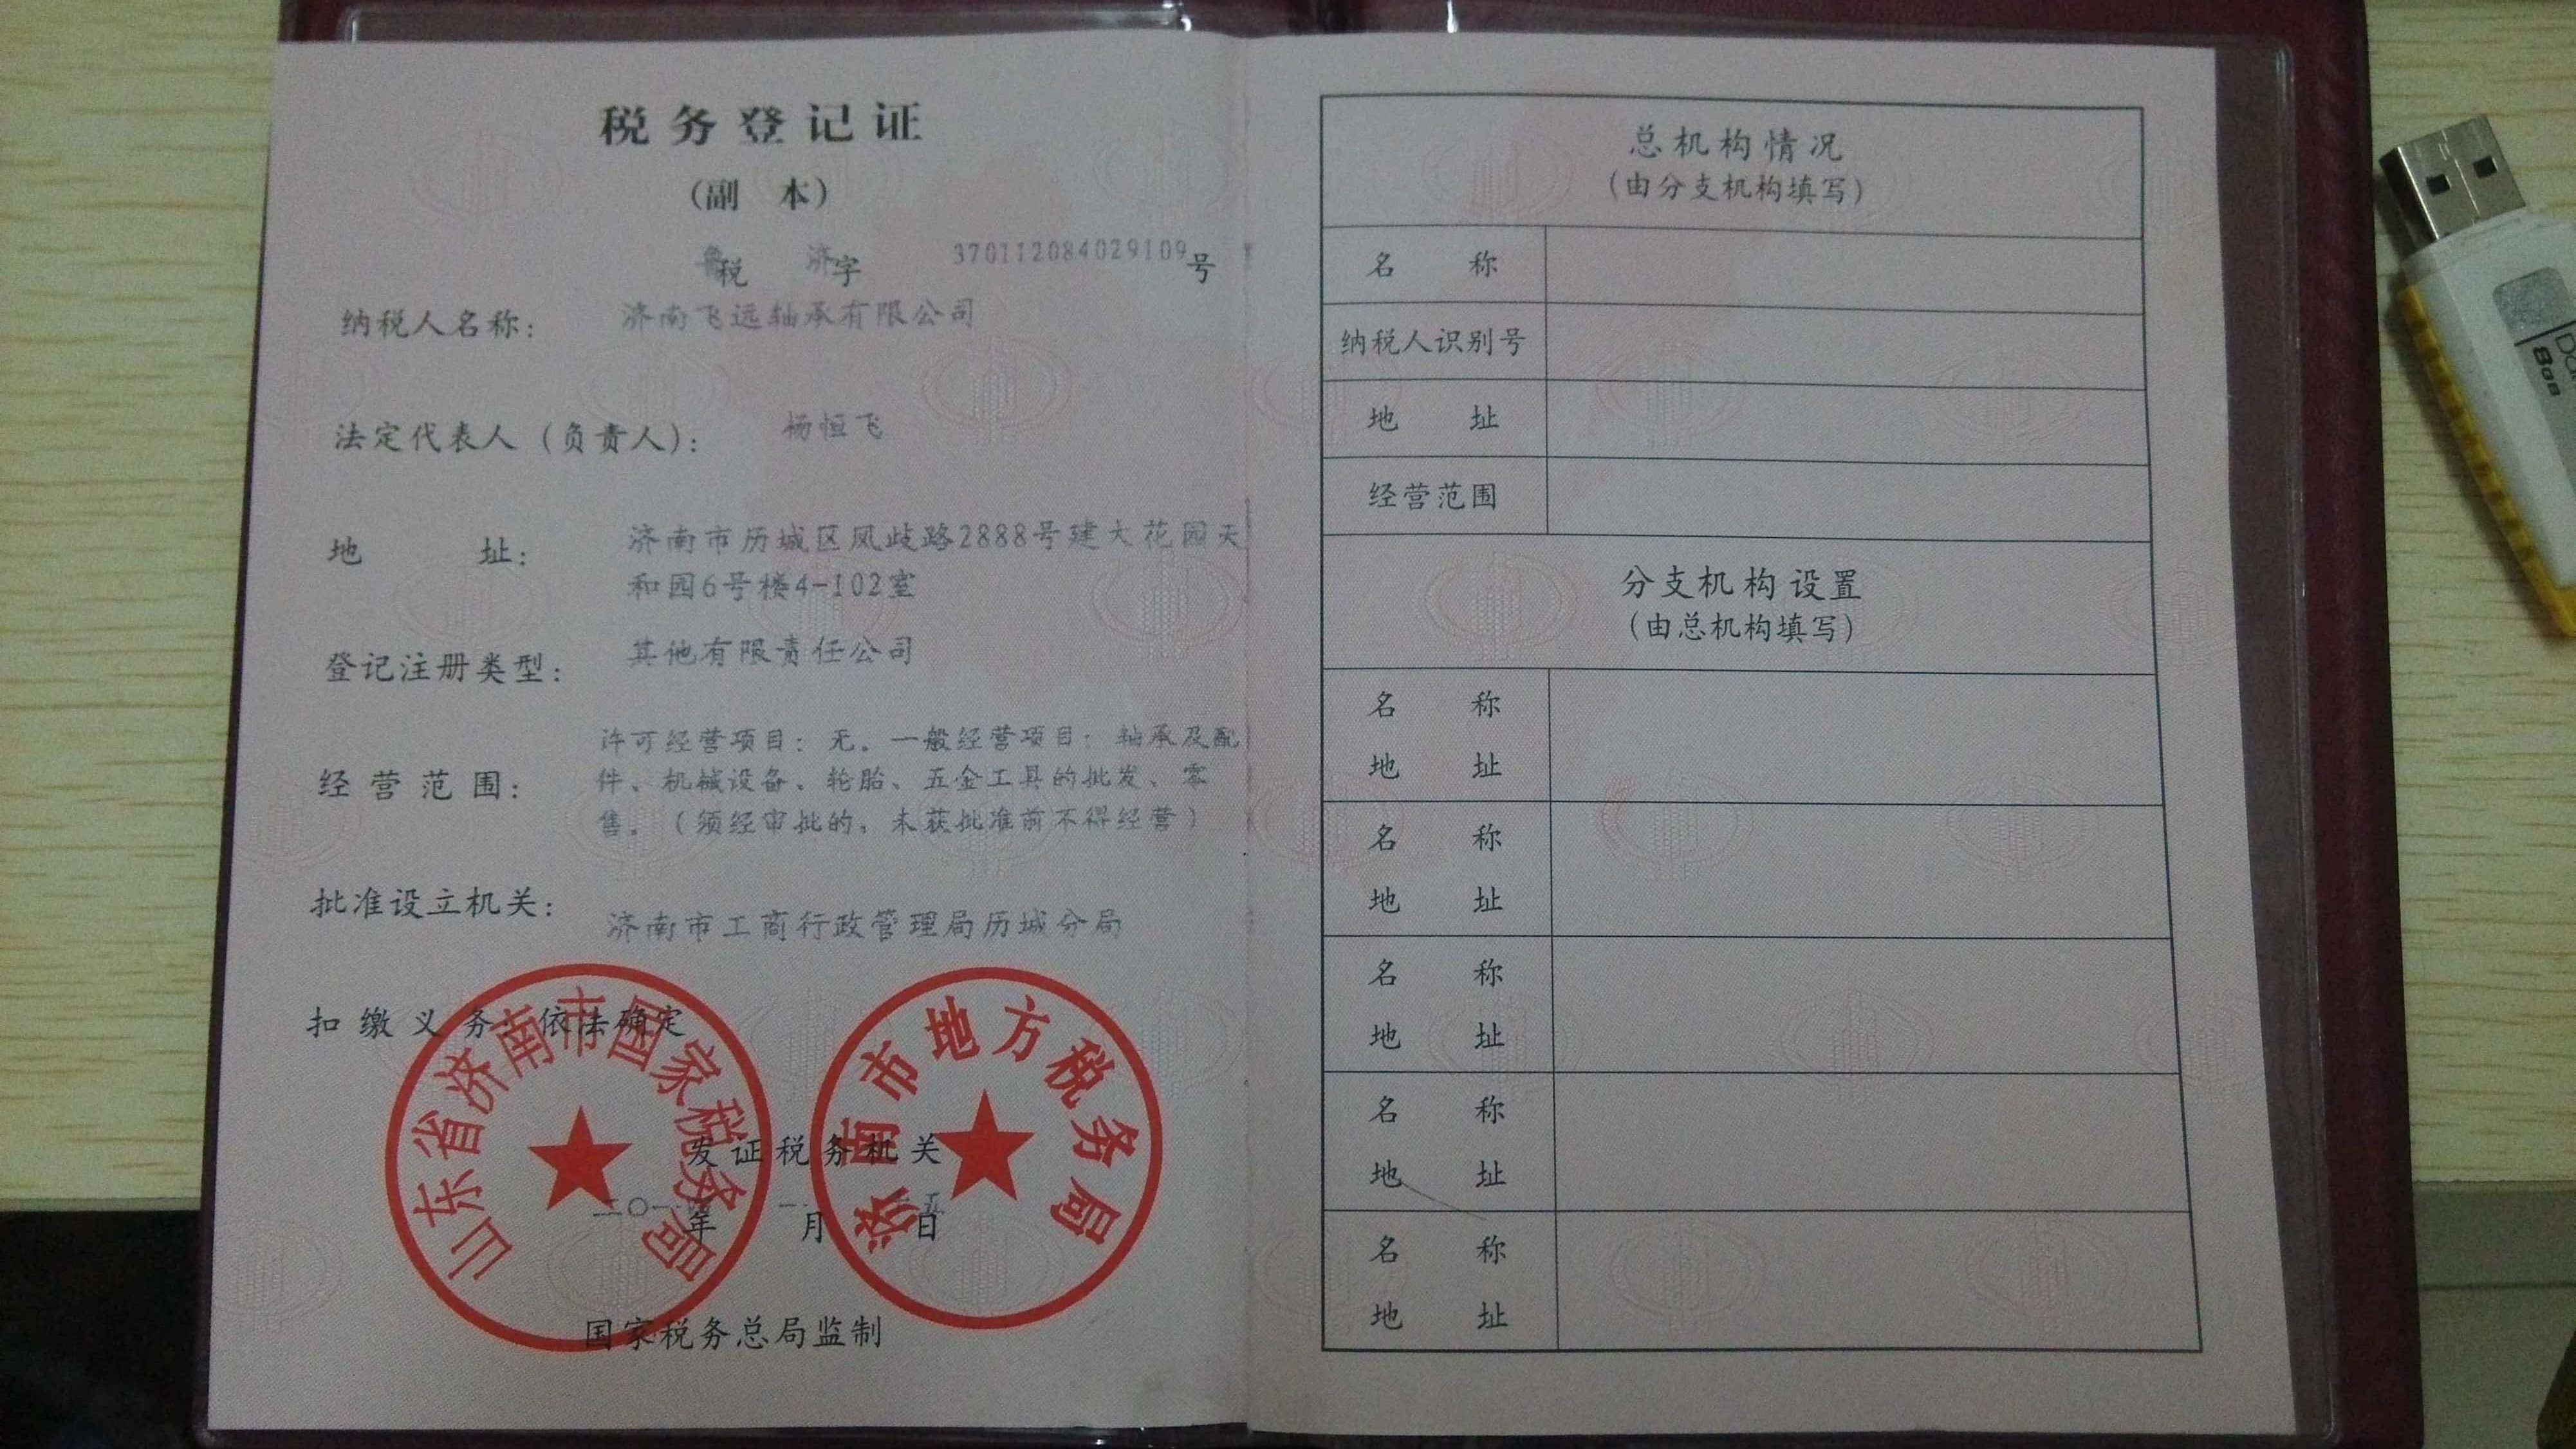 税务登记证
(副 本)
鲁税 济字 370112084029109号
纳税人名称: 济南飞远轴承有限公司
法定代表人(负责人): 杨恒飞
地 址: 济南市历城区凤歧路2888号建大花园天
和园6号楼4-102室
登记注册类型: 其他有限责任公司
经营范围: 许可经营项目: 无。一般经营项目: 轴承及配
件、机械设备、轮胎、五金工具的批发、零
售。(须经审批的,未获批准前不得经营)
批准设立机关: 济南市工商行政管理局历城分局
扣缴义务: 依法确定
山东省济南市国家税务局
济南市地方税务局
发证税务机关
年 月 日
国家税务总局监制
总机构情况
(由分支机构填写)
名 称
纳税人识别号
地 址
经营范围
分支机构设置
(由总机构填写)
名 称
地 址
名 称
地 址
名 称
地 址
名 称
地 址
名 称
地 址
8GB